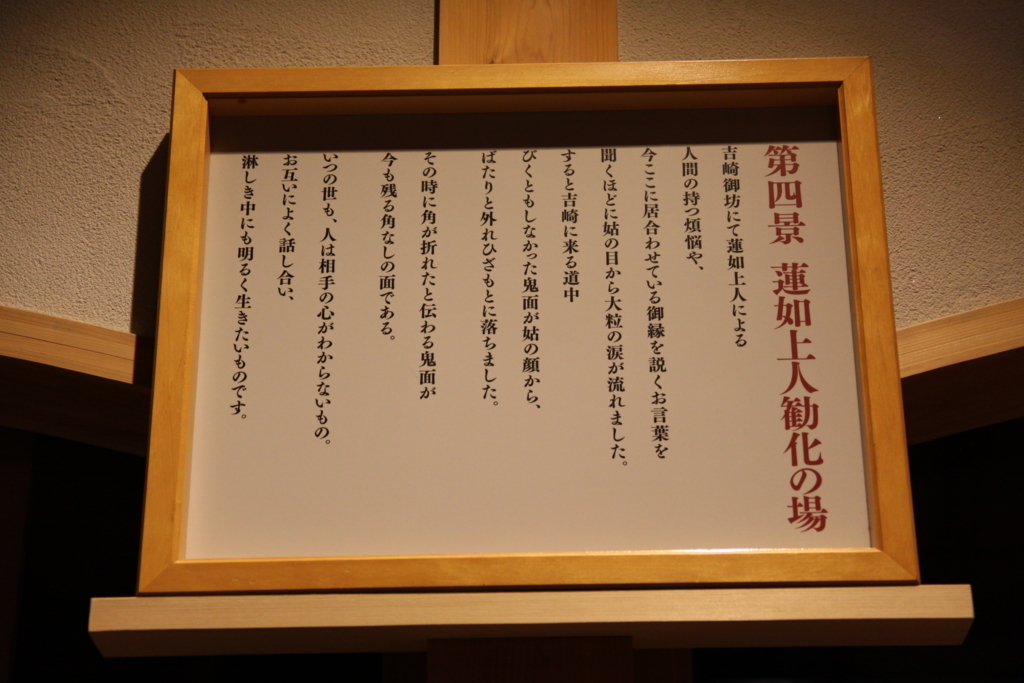 第四景 蓮如上人勧化の場
吉崎御坊にて蓮如上人による
人間の持つ煩悩や、
今ここに居合わせている御縁を説くお言葉を
聞くほどに姑の目から大粒の涙が流れました。
すると吉崎に来る道中
びくともしなかった鬼面が姑の顔から、
ぱたりと外れひざもとに落ちました。
その時に角が折れたと伝わる鬼面が
今も残る角なしの面である。
いつの世も、人は相手の心がわからないもの。
お互いによく話し合い、
淋しき中にも明るく生きたいものです。